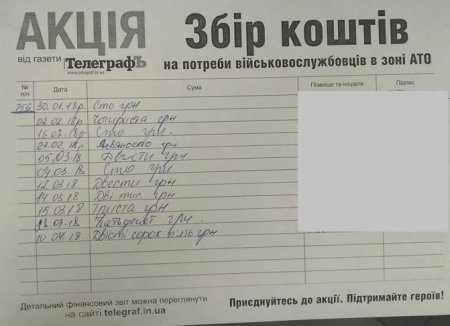 АКЦІЯ
від газети ТелеграфЪ
www.telegraf.in.ua
Збір коштів
на потреби військовослужбовців в зоні АТО
№ п/п Дата Сума Прізвище та ініціали Підпис
30.01.18р. Сто грн
02.02.18р. Чотириста грн
16.02.18р. Сто грн.
27.02.18р. грн
05.03.18 Двісти грн
09.03.18 Сто грн
12.03.18 Двести грн
14.03.18 Дві тис. грн
15.03.18 Триста грн
03.18 грн.
10.04.18 Двісті сорок п'ять грн
Детальний фінансовий звіт можна переглянути
на сайті telegraf.in.ua
Приєднуйтесь до акції. Підтримайте героїв!